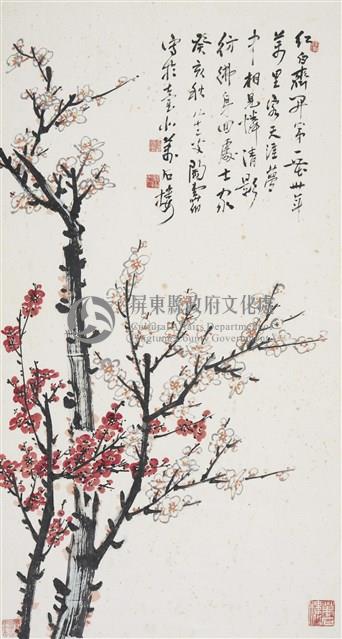 紅白齊開第一花卅年
萬里客天涯夢
中相見憐清影
彷彿身回處士家
癸亥秋八十二叟陶壽伯
寫於臺北萬石樓
屏東縣政府文化處
Cultural Affairs Department,
Pingtung County Government